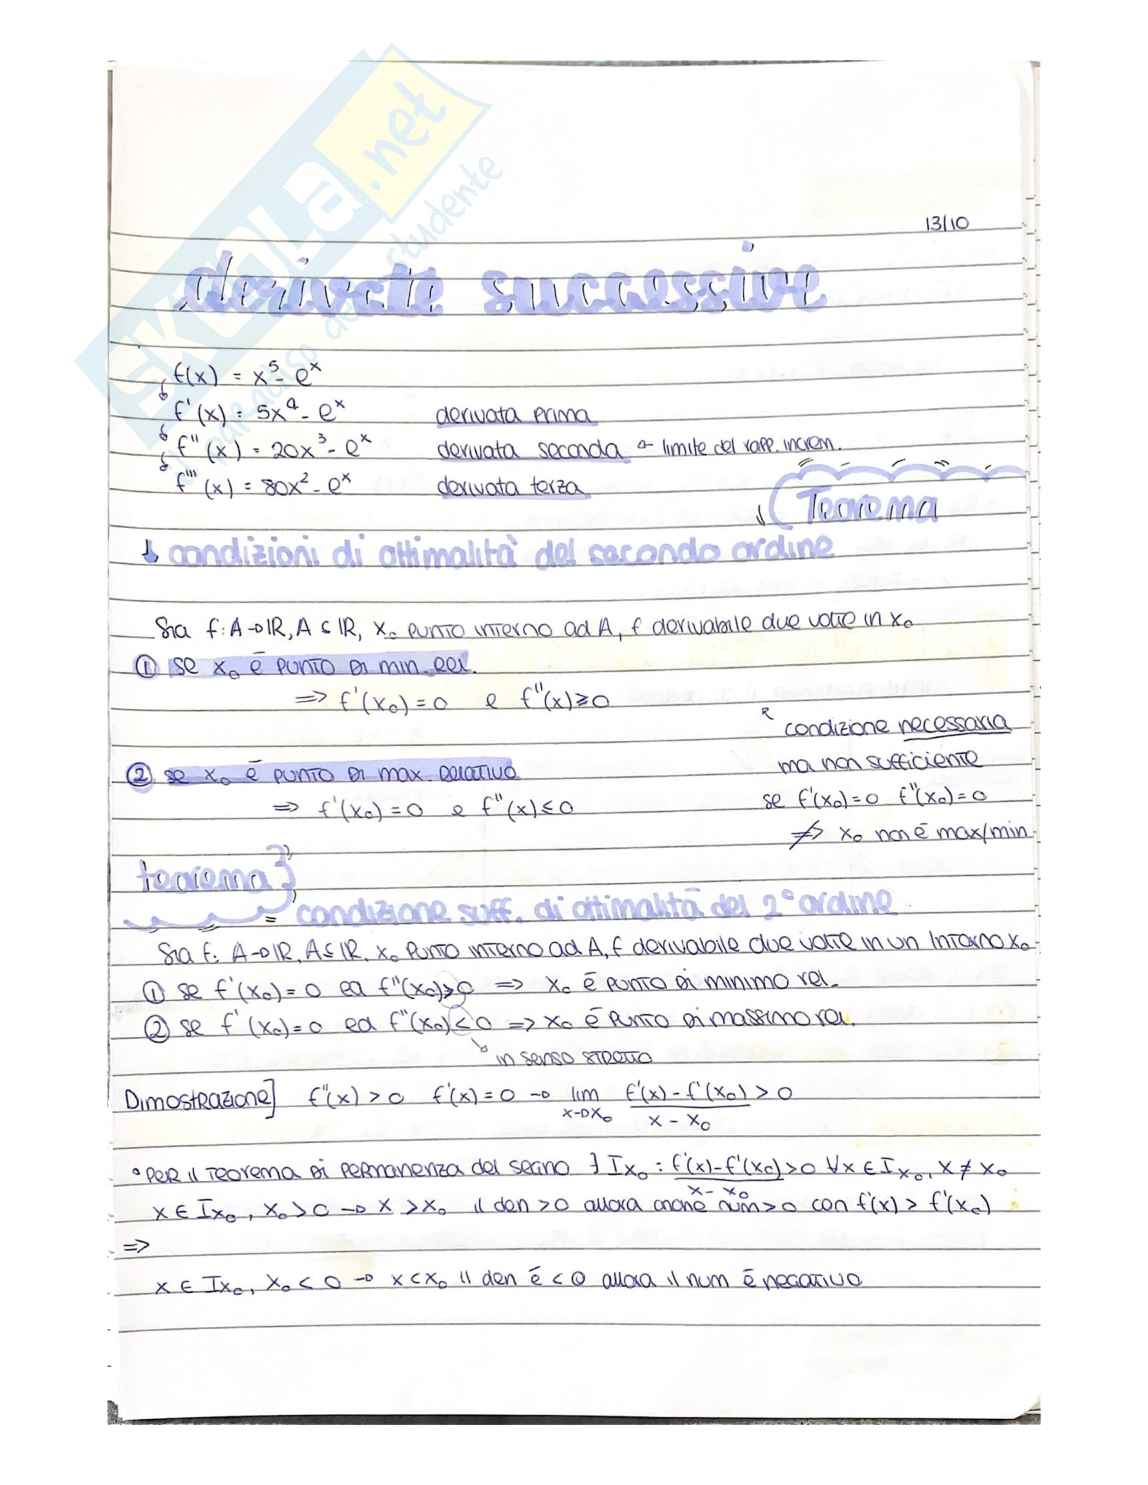 SKUOLA.net
13/10
derivate successive
f(x) = x⁵ - eˣ
f'(x) = 5x⁴ - eˣ derivata prima
f''(x) = 20x³ - eˣ derivata seconda ← limite del rapp. increm.
f'''(x) = 80x² - eˣ derivata terza
Teorema
↓ condizioni di ottimalità del secondo ordine
Sia f: A→ℝ, A ⊂ ℝ, x₀ punto interno ad A, f derivabile due volte in x₀
① se x₀ è punto di min. rel.
=> f'(x₀) = 0 e f''(x) ≥ 0
condizione necessaria
ma non sufficiente
② se x₀ è punto di max. relativo
=> f'(x₀) = 0 e f''(x) ≤ 0
se f'(x₀) = 0 f''(x₀) = 0
≠> x₀ non è max/min
teorema
= condizione suff. di ottimalità del 2° ordine
Sia f: A→ℝ, A ⊆ ℝ, x₀ punto interno ad A, f derivabile due volte in un intorno x₀
① se f'(x₀) = 0 ed f''(x₀) > 0 => x₀ è punto di minimo rel.
② se f'(x₀) = 0 ed f''(x₀) < 0 => x₀ è punto di massimo rel.
in senso stretto
Dimostrazione] f''(x) > 0 f'(x) = 0 → lim x→x₀ f'(x) - f'(x₀) / x - x₀ > 0
• Per il teorema di permanenza del segno ∃ Ix₀ : f'(x) - f'(x₀) / x - x₀ > 0 ∀x ∈ Ix₀, x ≠ x₀
x ∈ Ix₀, x₀ > 0 → x > x₀ il den > 0 allora anche num > 0 con f'(x) > f'(x₀)
=>
x ∈ Ix₀, x₀ < 0 → x < x₀ il den è < 0 allora il num è negativo